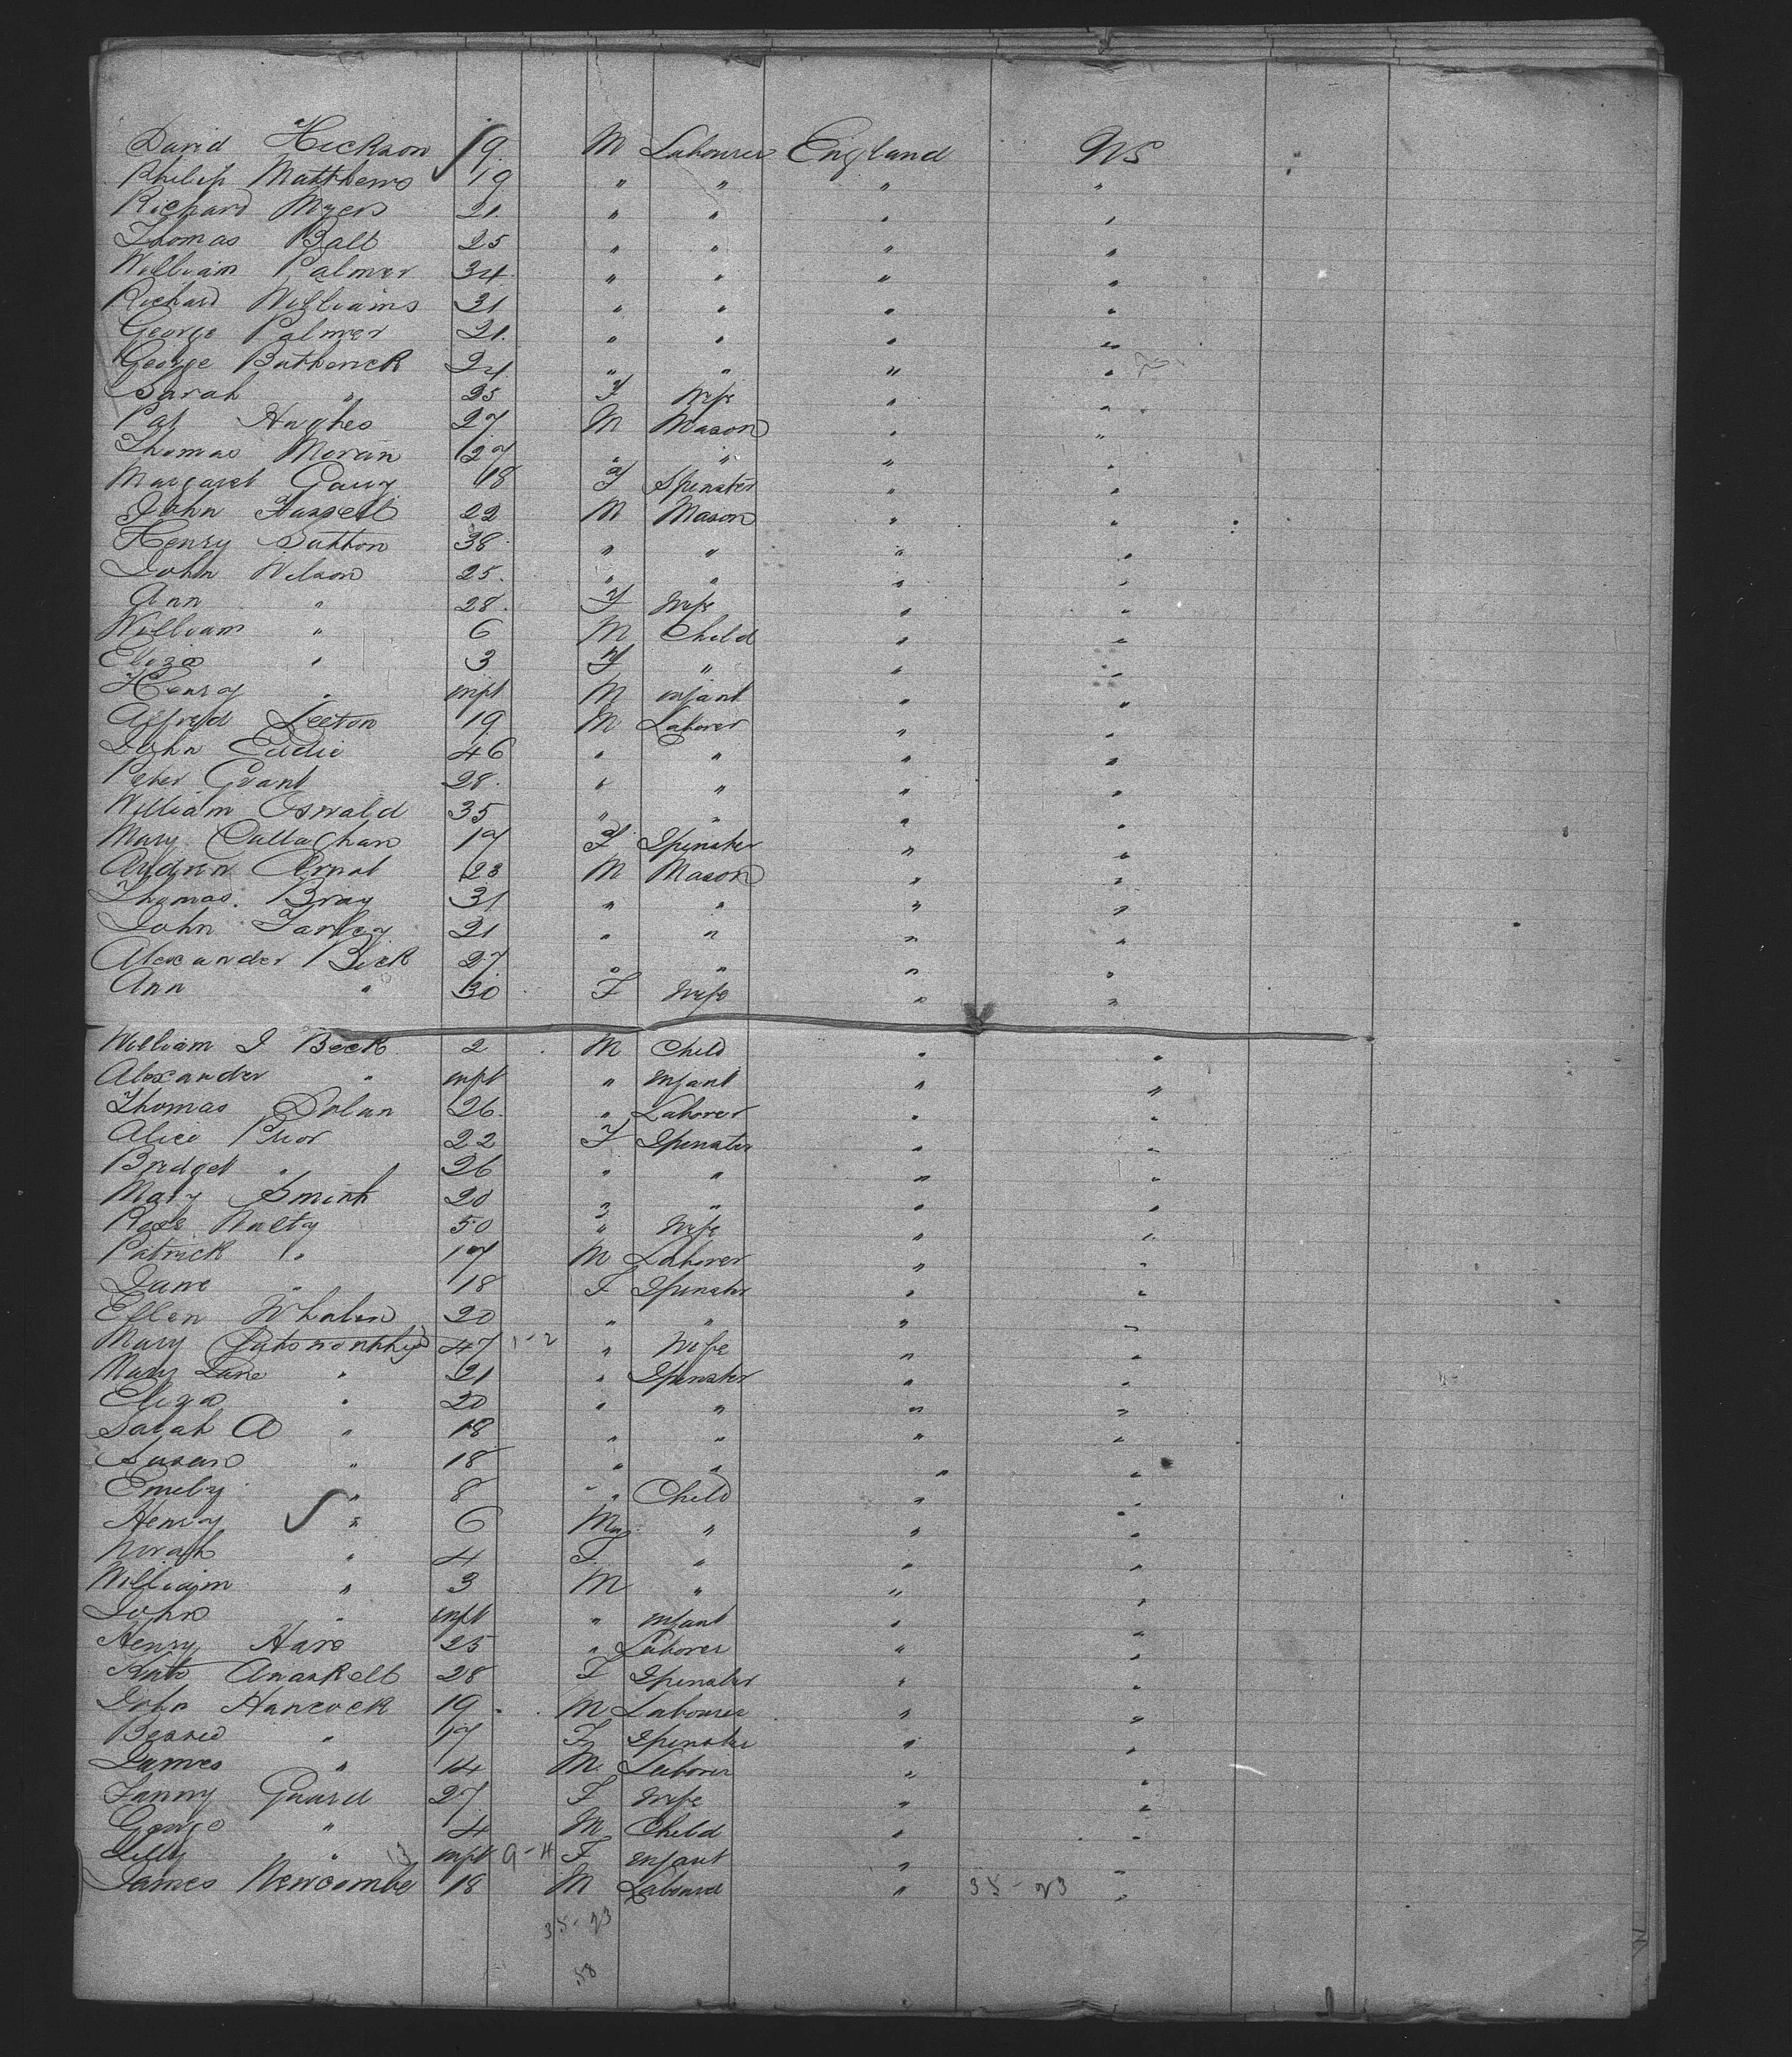 David Hickson 19 M Labourer England US
Philip Matthews 19 " " " "
Richard Myers 21 " " " "
Thomas Balt 25 " " " "
William Palmer 34 " " " "
Richard Williams 31 " " " "
George Palmer 21 " " " "
George Butherick 24 " " " "
Sarah " 25 F Wife " "
Pat Hughes 27 M Mason " "
Thomas Moran 27 " " " "
Margaret 18 F Spinster " "
John 22 M Mason " "
Henry Sutton 38 " " " "
John Wilson 25 " " " "
Ann " 28 F Wife " "
William " 6 M Child " "
Eliza " 3 F " " "
Henry " inft M infant " "
Alfred Leeton 19 M Laborer " "
John Eadie 46 " " " "
Peter Grant 28 " " " "
William Oswald 35 " " " "
Mary Callaghan 17 F Spinster " "
Andrew 23 M Mason " "
Thomas Bray 31 " " " "
John Farley 21 " " " "
Alexander Beck 27 " " " "
Ann " 30 F Wife " "
William J Beck 2 M Child " "
Alexander " inft " Infant " "
Thomas Dolan 26 " Laborer " "
Alice Prior 22 F Spinster " "
Bridget " 26 " " " "
Mary Smith 20 " " " "
Rose Nulty 50 " Wife " "
Patrick " 17 M Laborer " "
Jane " 18 F Spinster " "
Ellen Whalen 20 " " " "
Mary 47 1-2 " Wife " "
Mary Jane " 21 " Spinster " "
Eliza " 20 " " " "
Sarah A " 18 " " " "
Susan " 18 " " " "
Emily " 8 " Child " "
Henry " 6 M " " "
Norah " 4 F " " "
William " 3 M " " "
John " inft " infant " "
Henry Hare 25 " Laborer " "
Kate 28 F Spinster " "
John Hancock 19 M Labourer " "
Bessie " 17 F Spinster " "
James " 14 M Laborer " "
Fanny Guard 27 F Wife " "
George " 4 M Child " "
Lilly " 13 inft 9-11 F infant " "
James Newcombe 18 M Labourer " 35-23 "
35-23
58